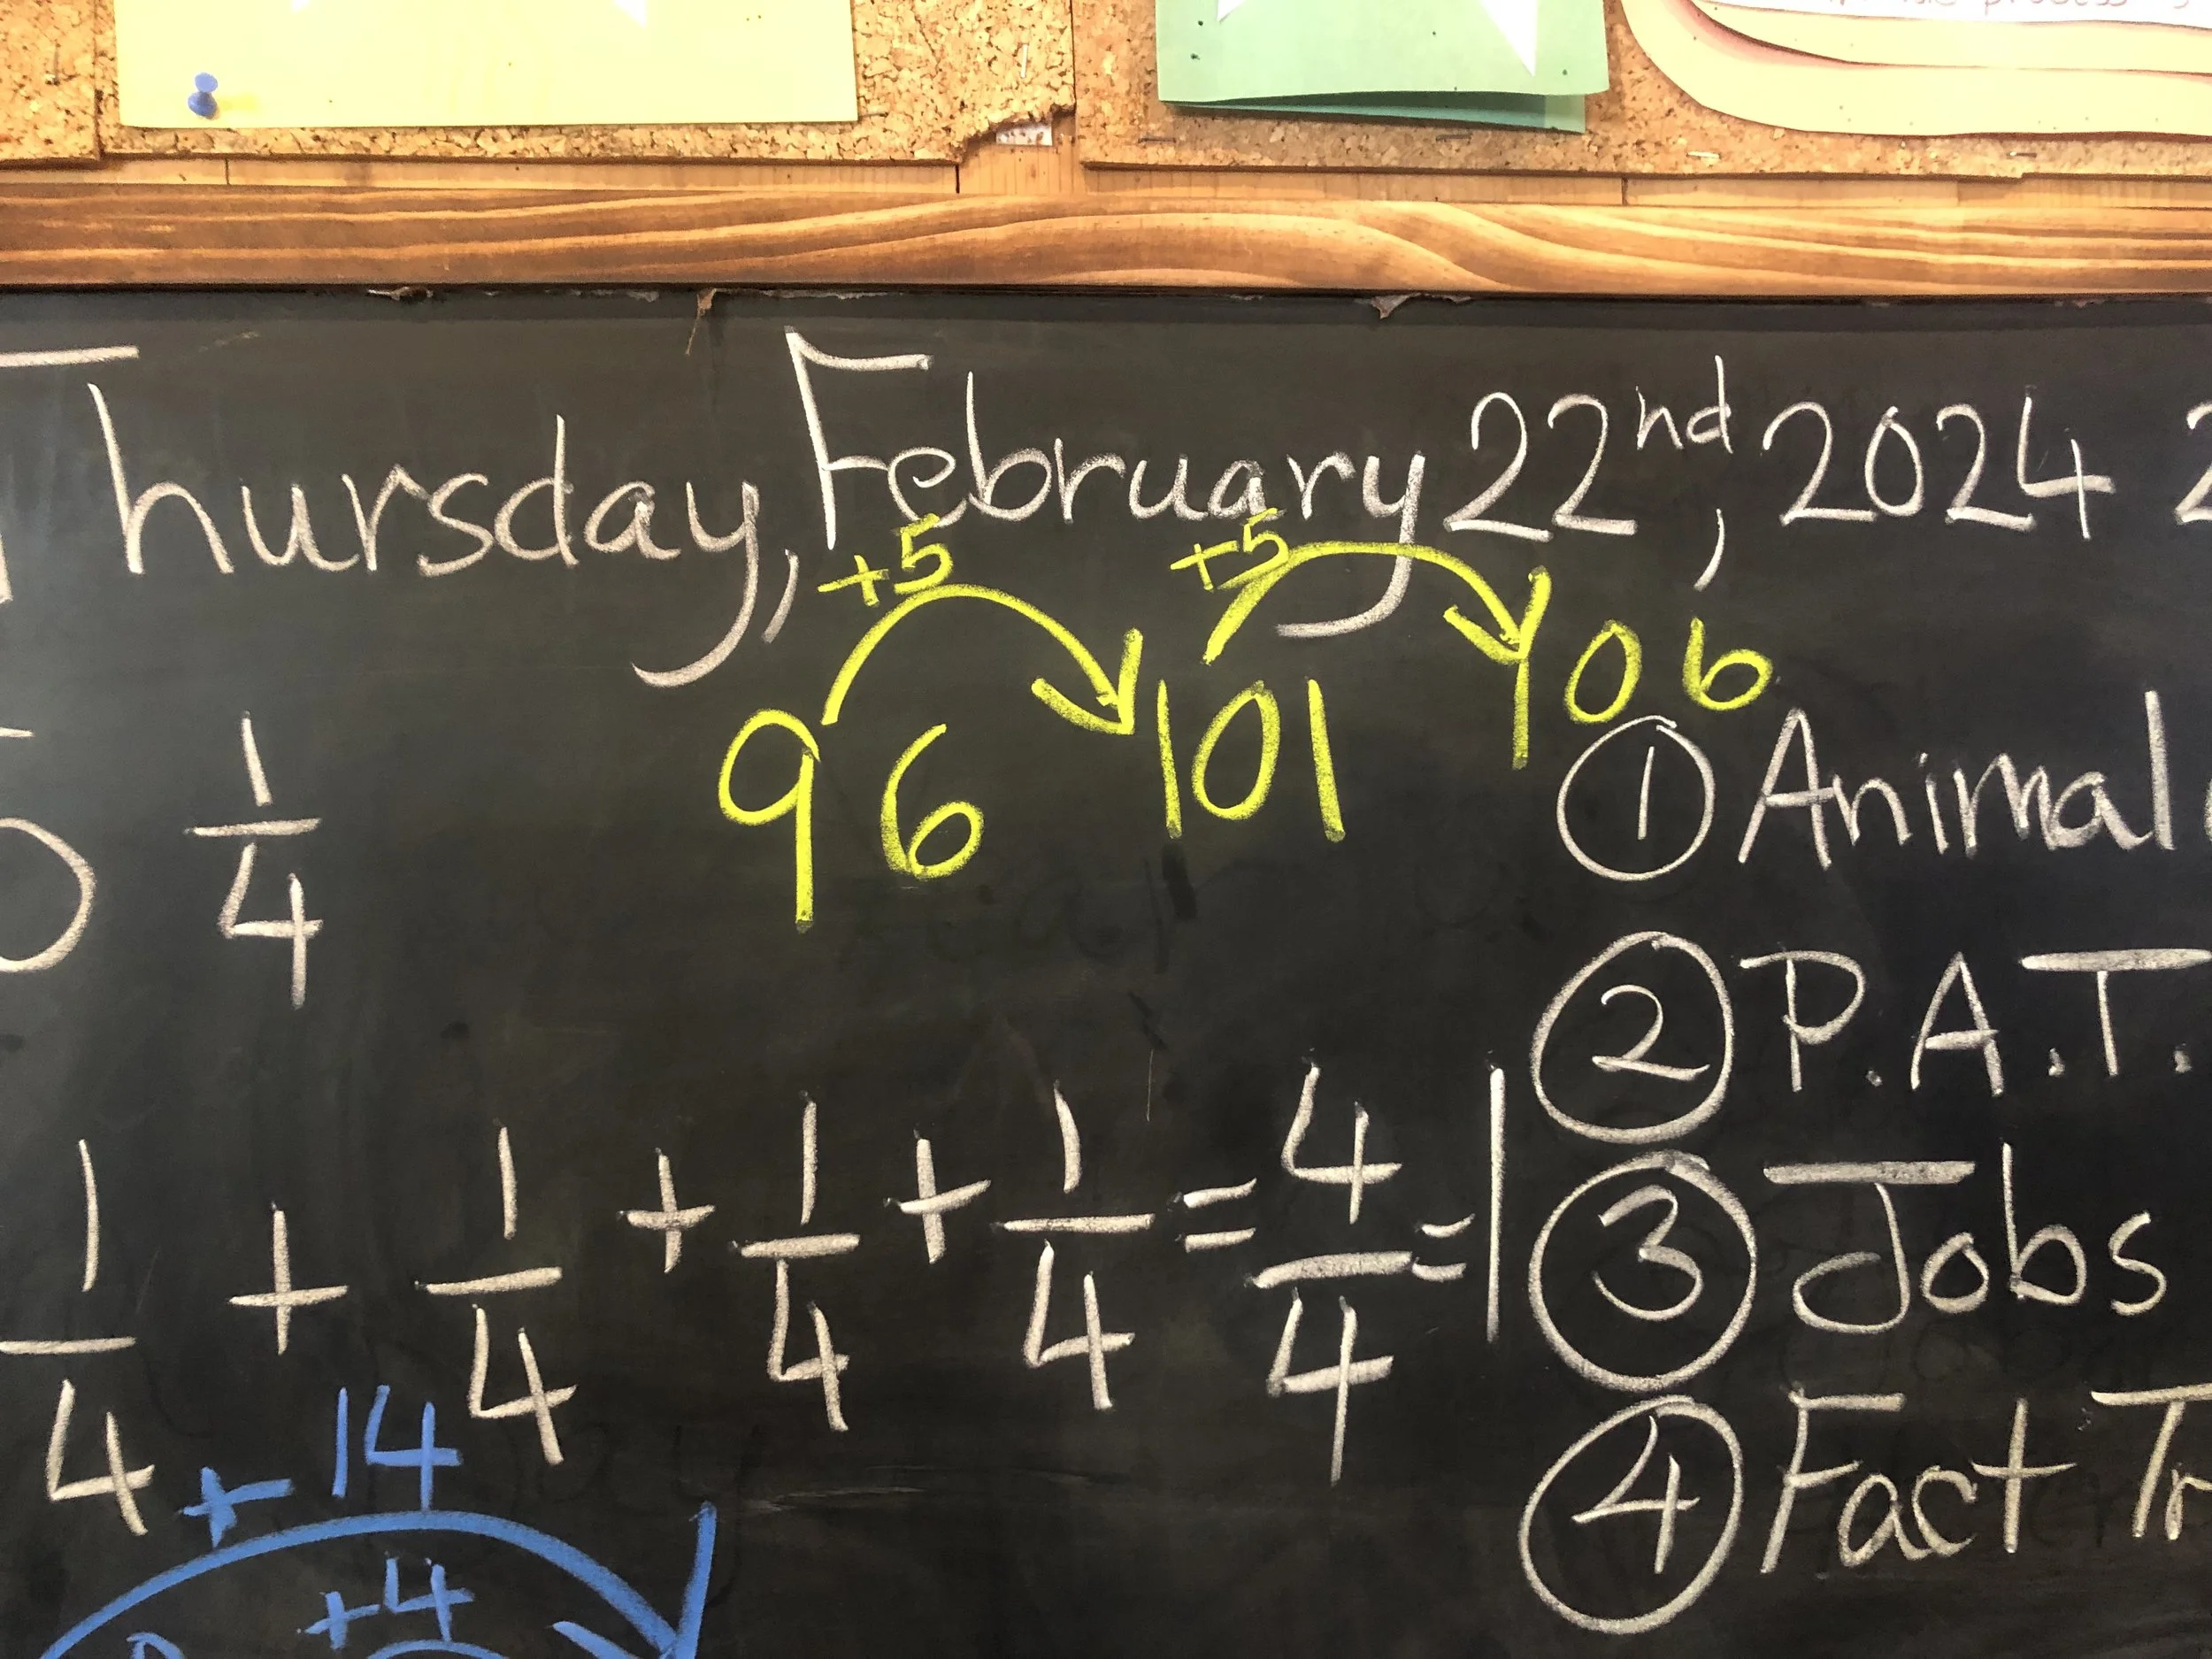 Thursday, February 22nd, 2024
+5 +5
96 101 106
1/4
① Animal
② P.A.T.
1/4 + 1/4 + 1/4 + 1/4 = 4/4 = 1
③ Jobs
④ Fact Tr
+14
+4